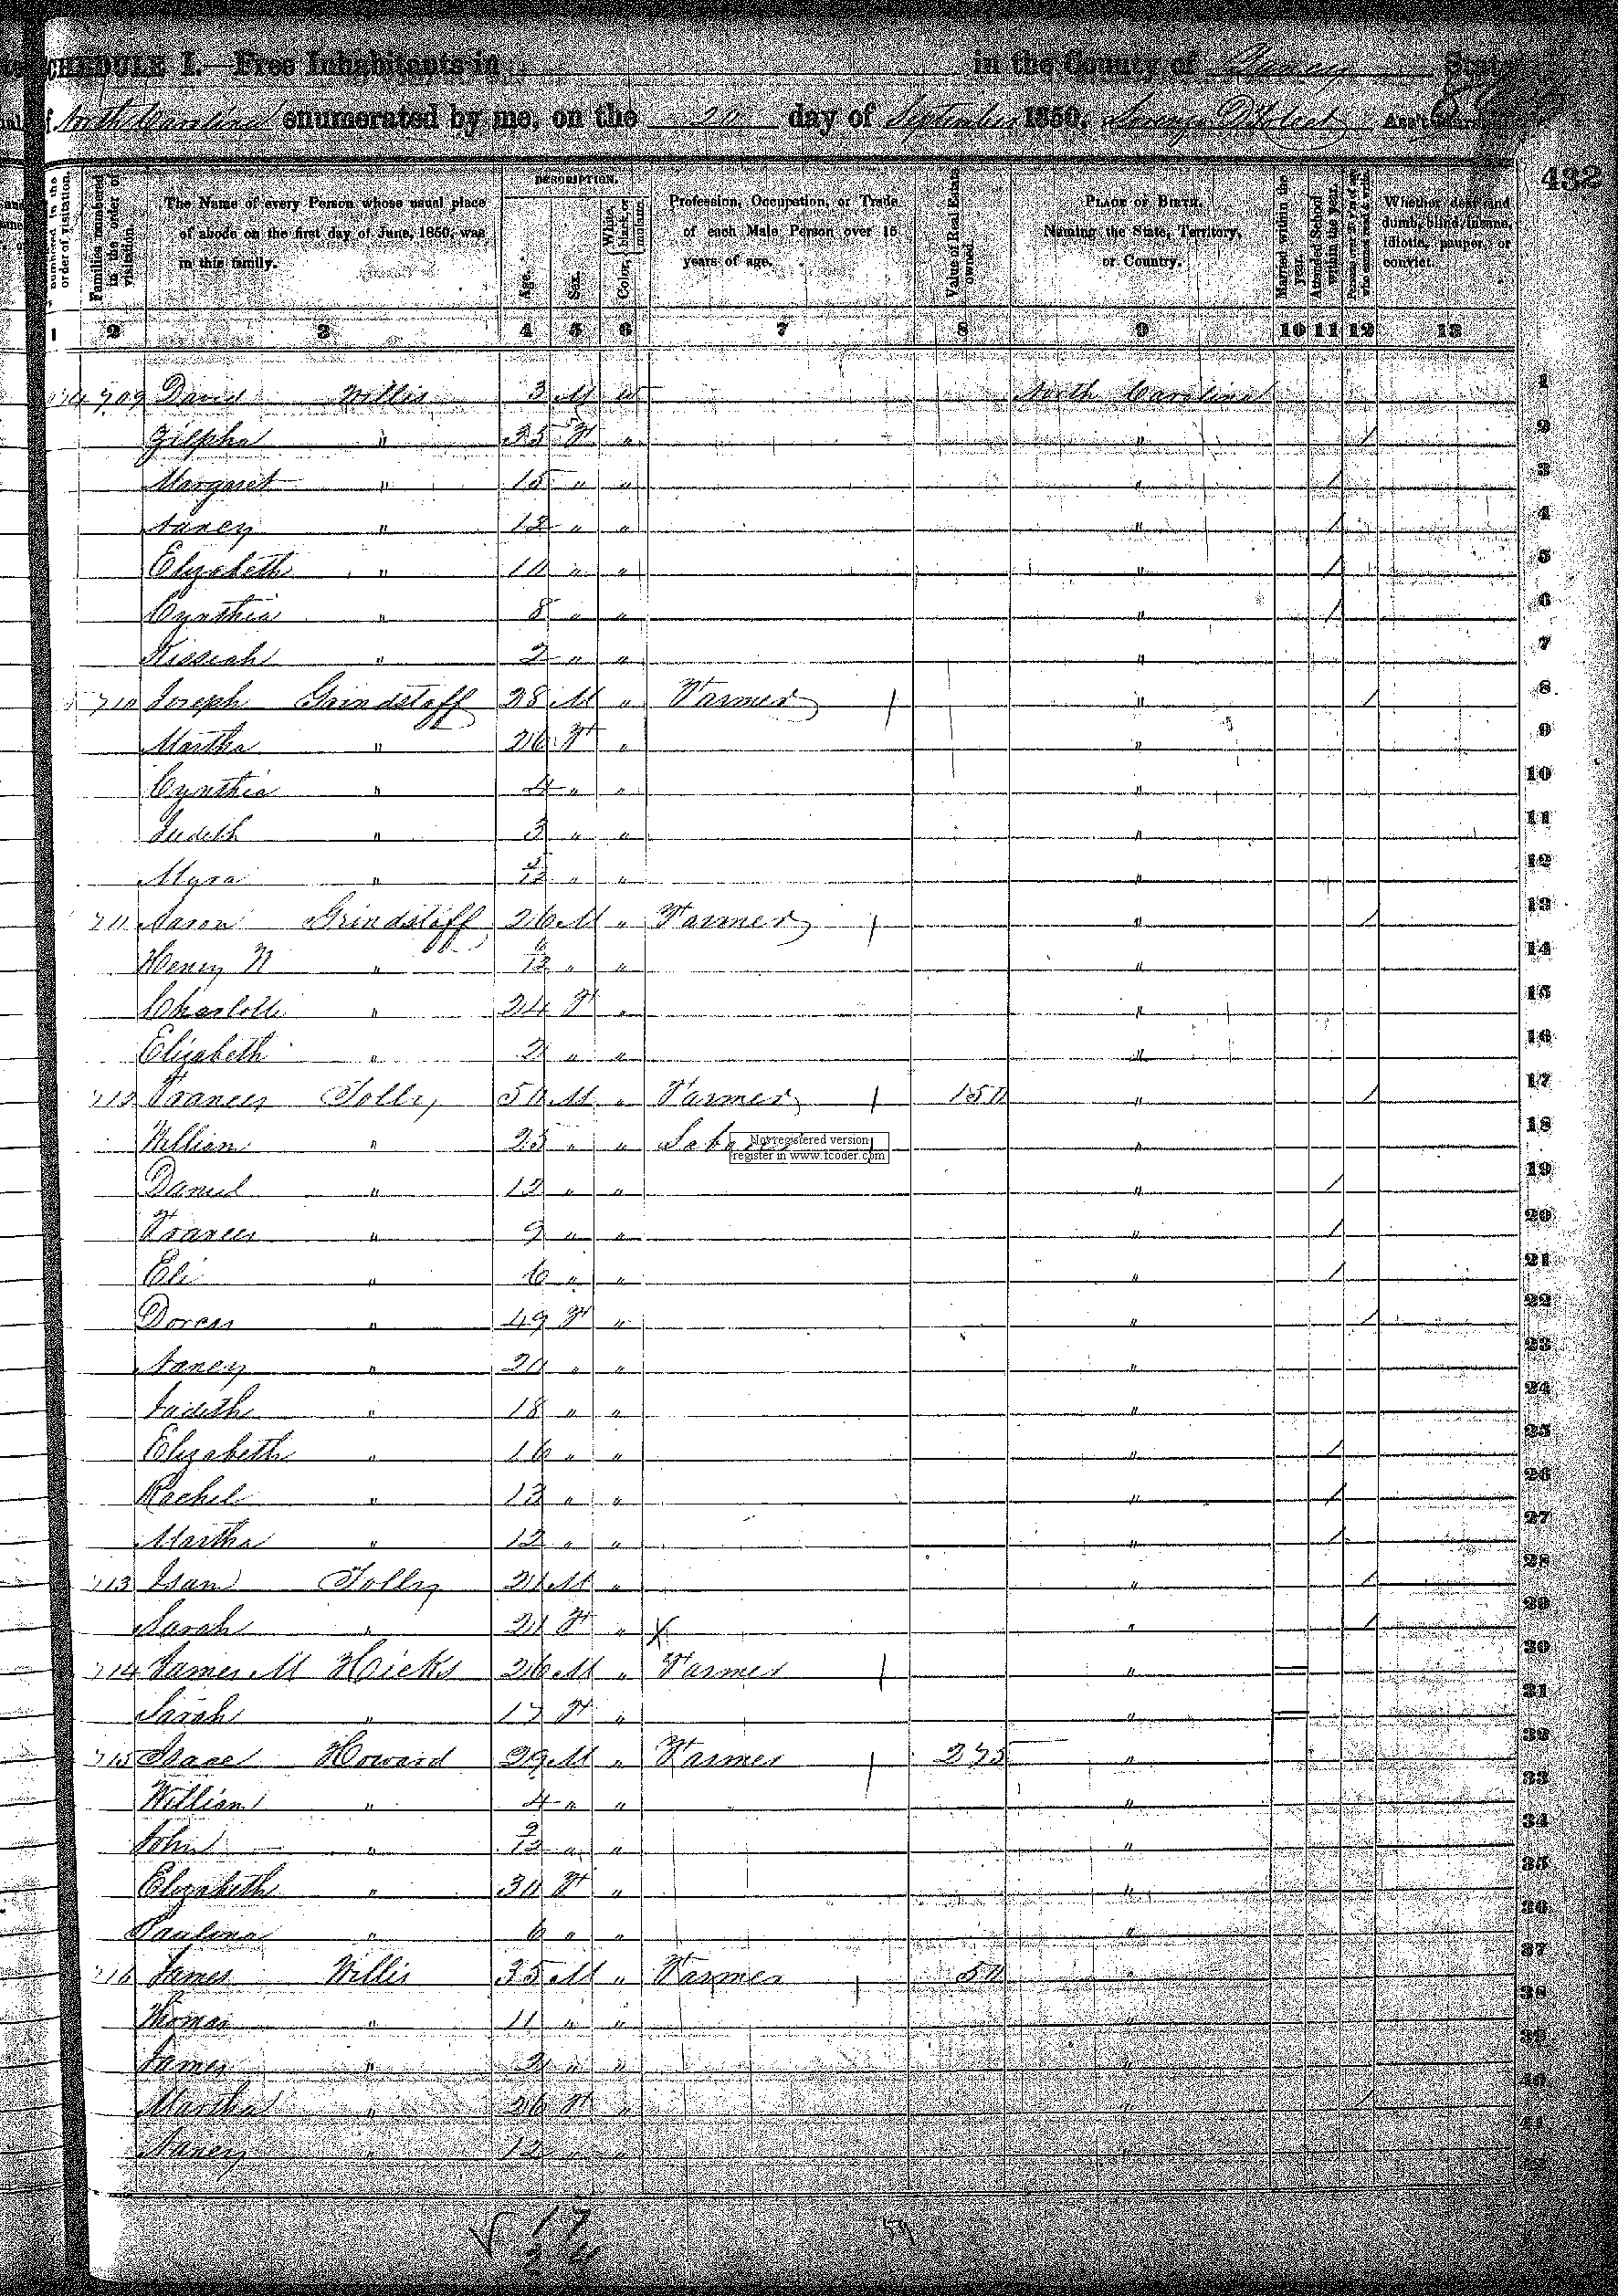 SCHEDULE I.—Free Inhabitants in in the County of Yancey State
of North Carolina enumerated by me, on the 20 day of September 1850. Ass't Mars
432
DESCRIPTION.
numbered in the order of visitation.
Families numbered in the order of visitation.
The Name of every Person whose usual place of abode on the first day of June, 1850, was in this family.
Age.
Sex.
Color, White, black, or mulatto.
Profession, Occupation, or Trade of each Male Person over 15 years of age.
Value of Real Estate owned.
PLACE OF BIRTH. Naming the State, Territory, or Country.
Married within the year.
Attended School within the year.
Persons over 20 y'rs of age who cannot read & write.
Whether deaf and dumb, blind, insane, idiotic, pauper, or convict.
1 2 3 4 5 6 7 8 9 10 11 12 13
709 David Willis 3 M W North Carolina 1
Zilpha " 35 F " " / 2
Margaret " 15 " " " / 3
Nancy " 12 " " " / 4
Elizabeth " 10 " " " / 5
Cynthia " 8 " " " / 6
Kissiah " 2 " " " 7
710 Joseph Grindstaff 28 M " Farmer " / 8
Martha " 26 F " " 9
Cynthia " 4 " " " 10
Judith " 3 " " " 11
Myra " 5/12 " " " 12
711 Aaron Grindstaff 26 M " Farmer " / 13
Henry N " /12 " " " 14
Charlotte " 24 F " " 15
Elizabeth " 2 " " " 16
712 Frances Tolly 50 M " Farmer 150 " / 17
William " 23 " " Laborer " 18
Not registered version
register in www.tcoder.com
Daniel " 12 " " " / 19
Frances " 9 " " " / 20
Eli " 6 " " " / 21
Dorcas " 49 F " " / 22
Nancy " 20 " " " 23
Judith " 18 " " " 24
Elizabeth " 16 " " " / 25
Rachel " 13 " " " / 26
Martha " 12 " " " / 27
713 Isam Tolly 21 M " " / 28
Sarah " 21 F " X " / 29
714 James M Hicks 26 M " Farmer " 30
Sarah " 17 F " " 31
715 Isaac Howard 29 M " Farmer 275 " 32
William " 4 " " " 33
John " 9/12 " " " 34
Elizabeth " 30 F " " 35
Paulina " 6 " " " 36
716 James Willis 35 M " Farmer 50 " 37
Thomas " 11 " " " 38
James " 2 " " " 39
Martha " 26 F " " / 40
Nancy " 12 " 41
42
√ 17